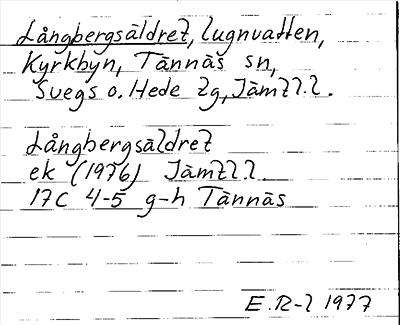 Långbergsåldret, lugnvatten,
Kyrkbyn, Tännäs sn,
Svegs o. Hede tg, Jämtl.l.
Långbergsåldret
ek (1976) Jämtl.l.
17C 4-5 g-h Tännäs
E.R-l 1977